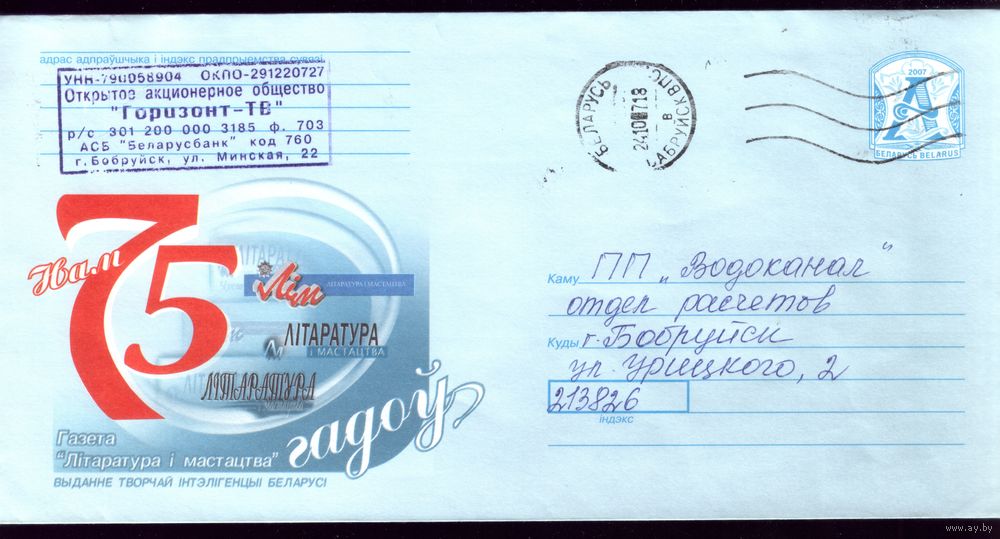 адрас адпраўшчыка і індэкс прадпрыемства сувязі
УНН-790058904 ОКПО-291220727
Открытое акционерное общество
"Горизонт-ТВ"
р/с 301 200 000 3185 ф. 703
АСБ "Беларусбанк" код 760
г.Бобруйск, ул. Минская, 22
БЕЛАРУСЬ
24.10 07.18
в
БАБРУЙСК ВПС
2007
А
БЕЛАРУСЬ BELARUS
Нам
75
ЛіМ
ЛІТАРАТУРА І МАСТАЦТВА
ЛІТАРАТУРА
І МАСТАЦТВА
ЛІТАРАТУРА
гадоў
Газета
"Літаратура і мастацтва"
ВЫДАННЕ ТВОРЧАЙ ІНТЭЛІГЕНЦЫІ БЕЛАРУСІ
Каму ПП „Водоканал"
отдел расчетов
Куды г. Бобруйск
ул. Урицкого, 2
213826
індэкс
www.ay.by